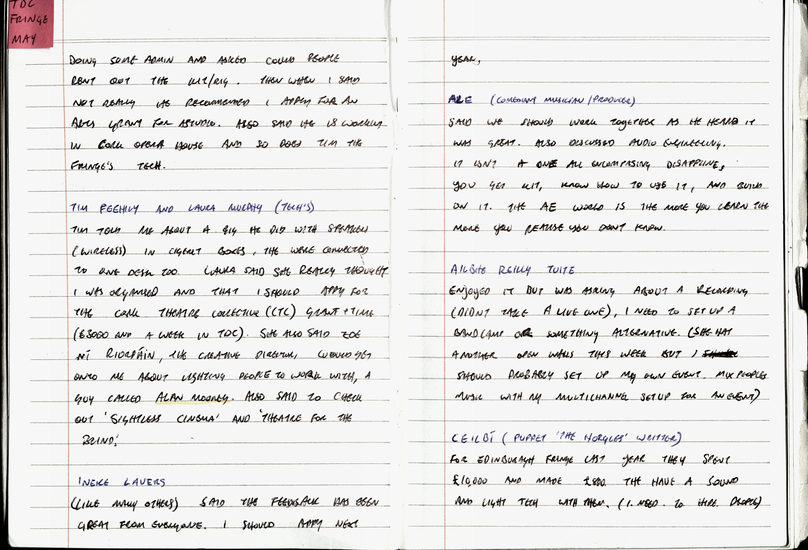 TDC
FRINGE
MAY
DOING SOME ADMIN AND ASKED COULD PEOPLE
RENT OUT THE KIT/RIG. THEN WHEN I SAID
NOT REALLY HE RECOMMENDED I APPLY FOR AN
ARTS GRANT FOR A STUDIO. ALSO SAID HE IS WORKING
IN CORK OPERA HOUSE AND SO DOES TIM THE
FRINGE'S TECH.
TIM FEEHILY AND LAURA MURPHY (TECH'S)
TIM TOLD ME ABOUT A GIG HE DID WITH SPEAKERS
(WIRELESS) IN CIGERT BOXES, THE WERE CONNECTED
TO ONE DESK TOO. LAURA SAID SHE REALLY THOUGHT
I WAS ORGANISED AND THAT I SHOULD APPLY FOR
THE CORK THEATRE COLLECTIVE (CTC) GRANT + TIME
(€3000 AND A WEEK IN TDC). SHE ALSO SAID ZOE
NÍ RIORDÁIN, THE CREATIVE DIRECTOR, WOULD GET
ONTO ME ABOUT LIGHTING PEOPLE TO WORK WITH, A
GUY CALLED ALAN MOONEY. ALSO SAID TO CHECK
OUT 'SIGHTLESS CINEMA' AND 'THEATRE FOR THE
BLIND'
INEKE LAVERS
(LIKE MANY OTHERS) SAID THE FEEDBACK HAS BEEN
GREAT FROM EVERYONE. I SHOULD APPLY NEXT
YEAR,
(COMEDIAN MUSICIAN/PRODUCER)
SAID WE SHOULD WORK TOGETHER AS HE HEARD IT
WAS GREAT. ALSO DISCUSSED AUDIO ENGINEERING.
IT ISN'T A ONE ALL ENCOMPASING DISAPPLINE,
YOU GET KIT, KNOW HOW TO USE IT, AND BUILD
ON IT. THE AE WORLD IS THE MORE YOU LEARN THE
MORE YOU REALISE YOU DON'T KNOW.
AILBHE REILLY TUITE
ENJOYED IT BUT WAS ASKING ABOUT A RECORDING
(DIDN'T TAKE A LIVE ONE), I NEED TO SET UP A
BANDCAMP OR SOMETHING ALTERNATIVE. (SHE HAT
ANOTHER OPEN WALLS THIS WEEK BUT I
SHOULD PROBABLY SET UP MY OWN EVENT. MIX PEOPLES
MUSIC WITH MY MULTICHANNEL SETUP FOR AN EVENT)
CEILBÍ (PUPPET 'THE WRITER)
FOR EDINBURGH FRINGE LAST YEAR THEY SPENT
£10,000 AND MADE £800. THE HAVE A SOUND
AND LIGHT TECH WITH THEM. (I NEED TO HIRE PEOPLE)